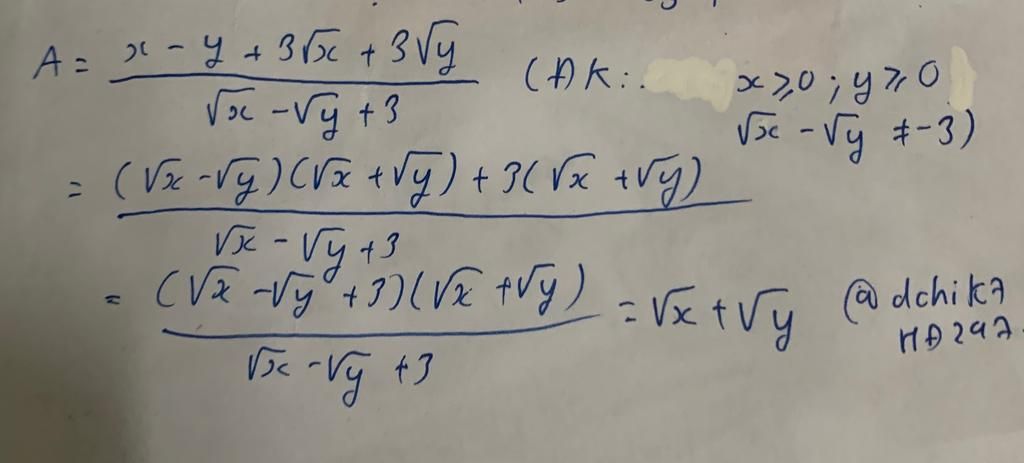 A = (x - y + 3√x + 3√y) / (√x - √y + 3) (ĐK: x ≥ 0; y ≥ 0
√x - √y ≠ -3)
= ((√x - √y)(√x + √y) + 3(√x + √y)) / (√x - √y + 3)
= ((√x - √y + 3)(√x + √y)) / (√x - √y + 3) = √x + √y
@dchik7
HĐ297.